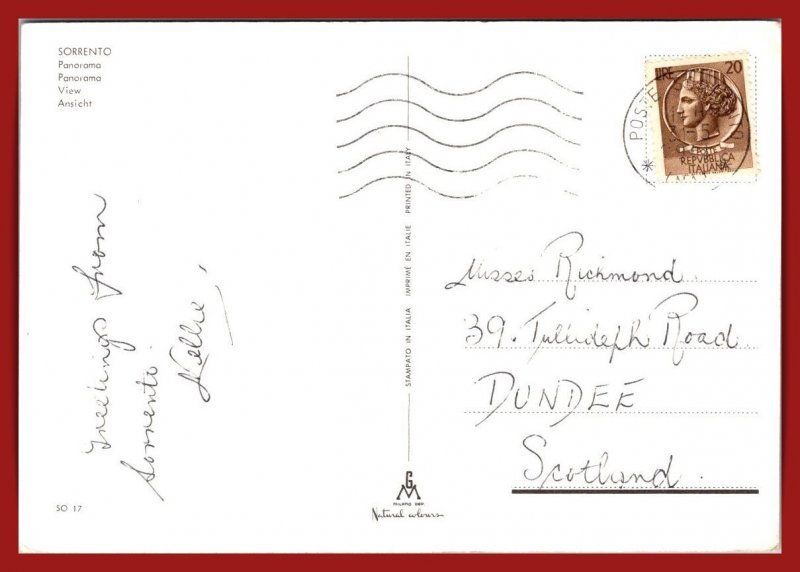 SORRENTO
Panorama
Panorama
View
Ansicht
Greetings from
Sorrento.
Nellie,
STAMPATO IN ITALIA IMPRIMÉ EN ITALIE PRINTED IN ITALY
LIRE 20
POSTE
REPVBBLICA
ITALIANA
POSTE
Misses Richmond.
39. Tullideph Road
DUNDEE
Scotland.
SO 17
GM
MILANO DEP.
Natural colours